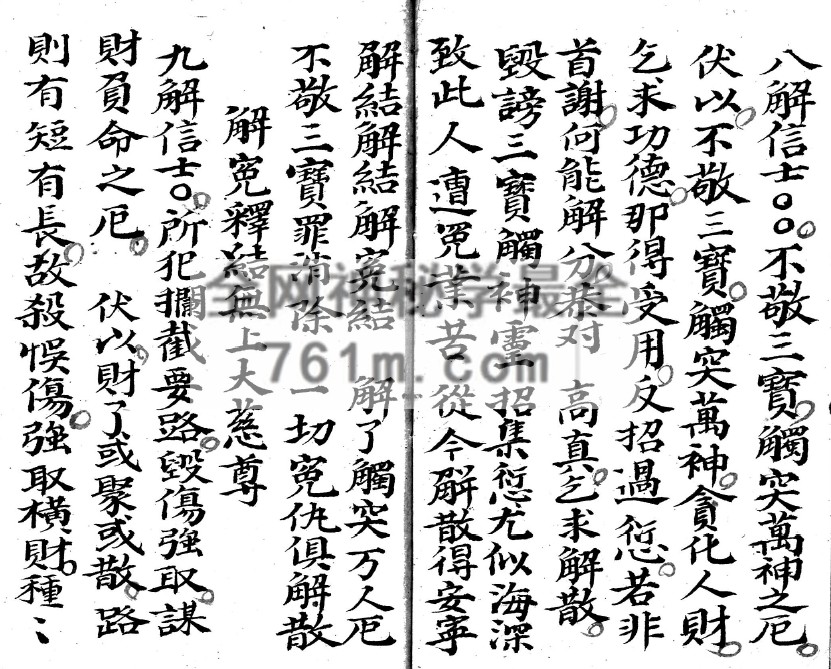 八解信士〇〇。不敬三寶。觸突萬神之厄。
伏以不敬三寶。觸突萬神。貪化人財。
乞求功德。那得受用。反招過愆。若非
首謝何能解分。恭对 高真。乞求解散。
毀謗三寶觸神靈招集愆尤似海深
致此人遭冤業苦從今解散得安寧
解結解結解冤結 解了觸突万人厄
不敬三寶罪消除一切冤仇俱解散
解冤釋結無上大慈尊
九解信士〇。所犯攔截要路。毀傷強取。謀
財負命之厄。 伏以財了或聚或散。路
則有短有長。故殺悞傷。強取橫財。種〻
全网神秘学最全
761m.com